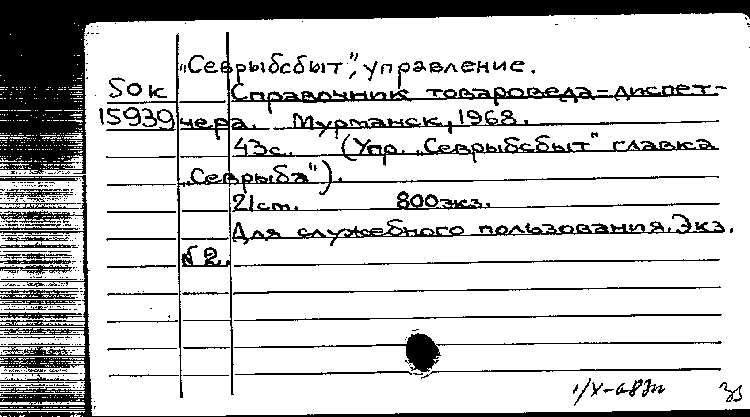 „Севрыбсбыт", управление.
50к Справочник товароведа=диспет-
15939 чера. Мурманск, 1968.
43с. (Упр. „Севрыбсбыт" главка
„Севрыба").
21см. 800экз.
Для служебного пользования. Экз.
№2.